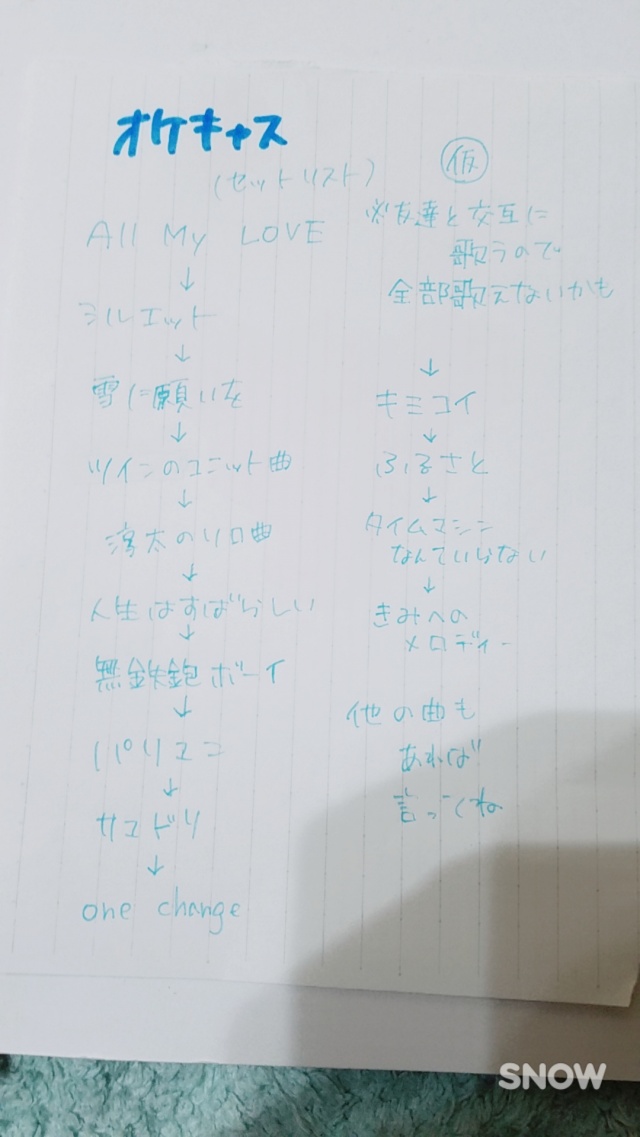 オケキャス
(セットリスト)
All My LOVE
↓
シルエット
↓
雪に願いを
↓
ツインのユニット曲
↓
淳太のソロ曲
↓
人生はすばらしい
↓
無鉄鉋ボーイ
↓
パリユニ
↓
サユドリ
↓
one change
仮
※友達と交互に
歌うので
全部歌えないかも
↓
キミコイ
↓
ふるさと
↓
タイムマシン
なんていらない
↓
きみへの
メロディー
他の曲も
あれば
言ってくね
SNOW